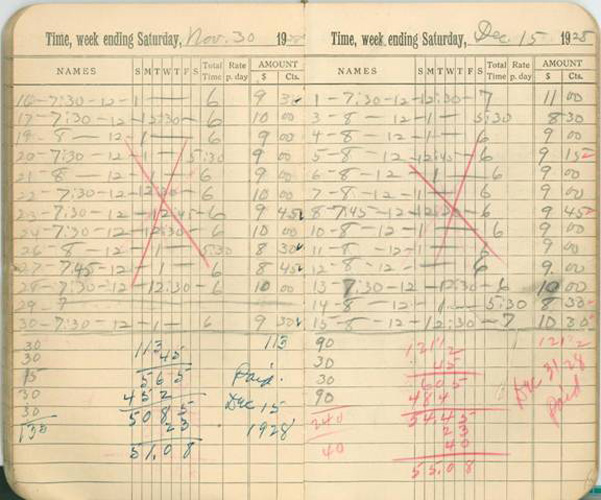 Time, week ending Saturday, Nov. 30 1928
NAMES S M T W T F S Total Time Rate p. day AMOUNT $ Cts.
16-7:30-12-1 6 9 30
17-7:30-12-12:30-6 10 00
19-8-12-1-6 9 00
20-7:30-12-1-5:30 9 00
21-8-12-1-6 9 00
22-7:30-12-12:30-6 10 00
23-7:30-12-12:45-6 9 45
24-7:30-12-12:30-6 10 00
26-8-12-1-5:30 8 30
27-7:45-12-1-6 8 45
28-7:30-12-12:30-6 10 00
29-
30-7:30-12-1 6 9 30
30 113 113
30 45
15 565
30 452 Paid.
30 5085 Dec 15
135 23 1928
51.08
Time, week ending Saturday, Dec. 15 1928
NAMES S M T W T F S Total Time Rate p. day AMOUNT $ Cts.
1-7:30-12-12:30-7 11 00
3-8-12-1-5:30 8 30
4-8-12-1-6 9 00
5-8-12-12:45-6 9 15
6-8-12-1-6 9 00
7-8-12-1-6 9 00
8-7:45-12-12:30-6 9 45
10-8-12-1-6 9 00
11-8-12-1 9 00
12-8-12-1-6 9 00
13-7:30-12-12:30-6 10 00
14-8-12-1-5:30 8 30
15-8-12-12:30-7 10 30
90 121 2 121 2
30 45
30 605 Dec 31 28
90 484 Paid
240 5445
23
40 40
55.08